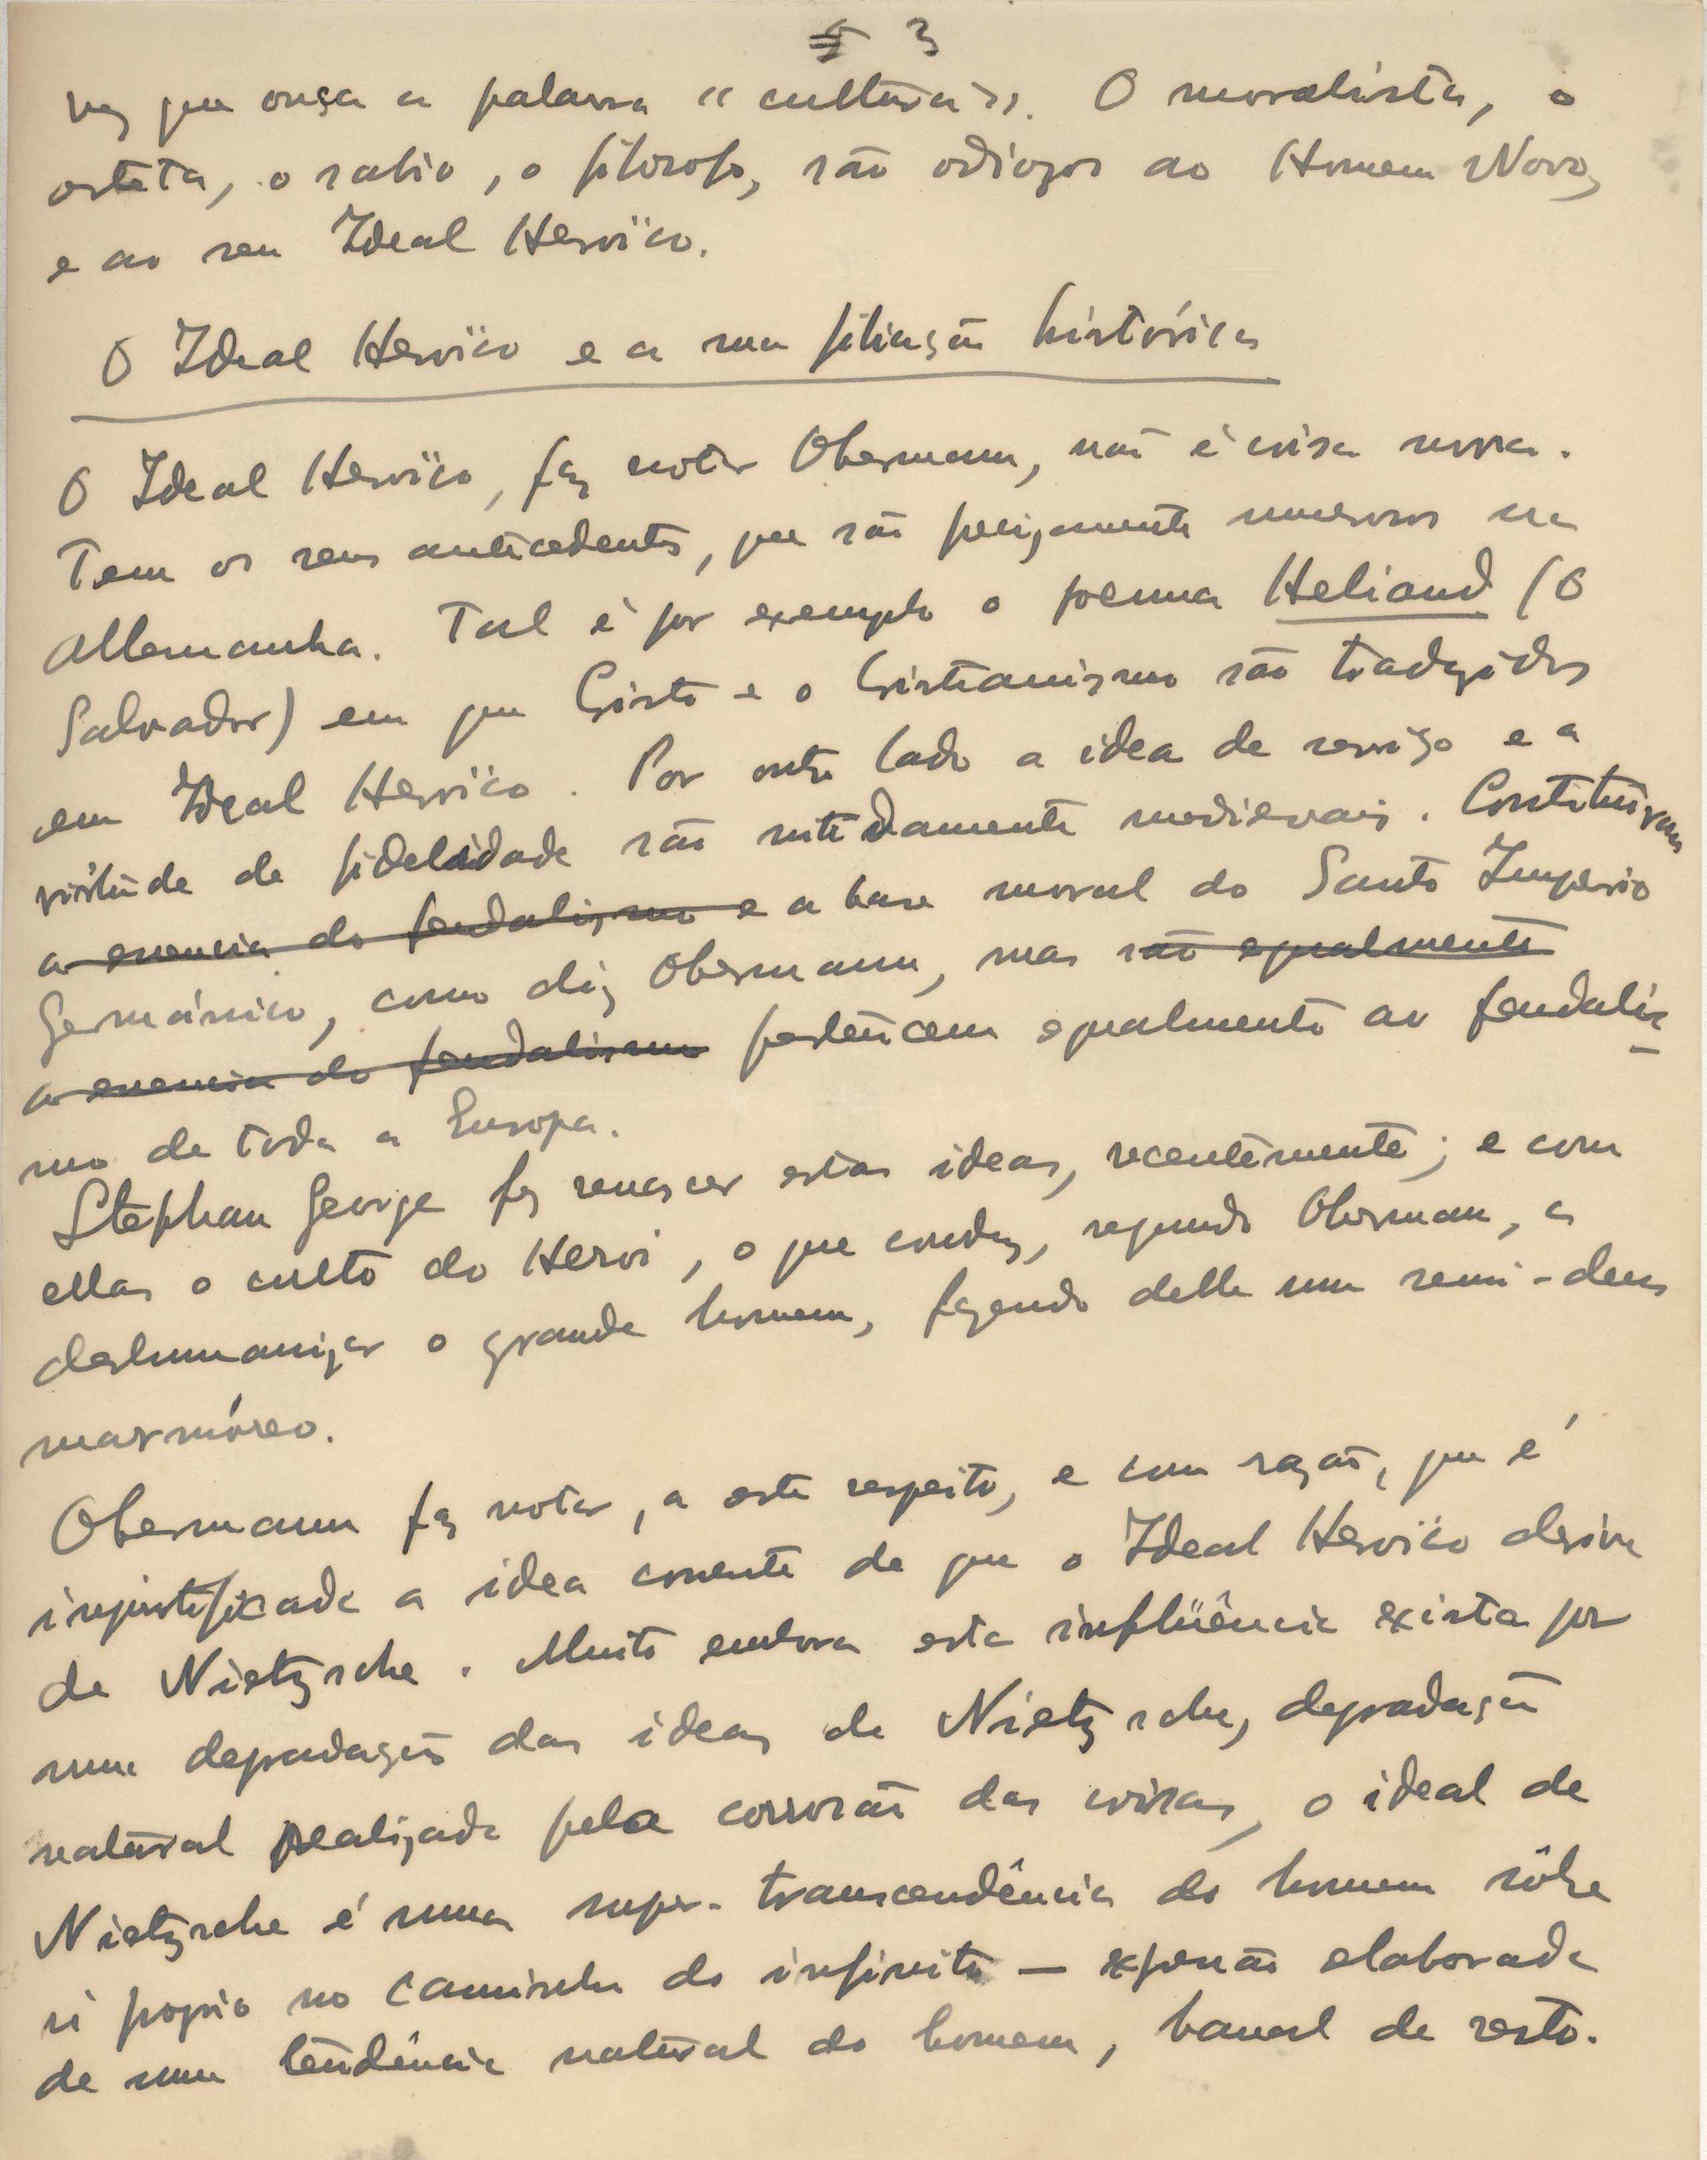 3
vez que ouça a palavra «cultura». O moralista, o
esteta, o sabio, o filosofo, são odiozos ao Homem Novo,
e ao seu Ideal Heroïco.
O Ideal Heroïco e a sua filiação histórica
O Ideal Heroïco, faz notar Obermann, não é coisa nova.
Tem os seus antecedentes, que são precizamente numerosos na
Allemanha. Tal é por exemplo o poema Heliand (O
Salvador) em que Cristo e o Cristianismo são traduzidos
em Ideal Heroïco. Por outro lado a idea de serviço e a
virtude de fidelidade são nitidamente medievais. Constituiram
a essencia do feudalismo e a base moral do Santo Imperio
Germánico, como diz Obermann, mas são egualmente
a essencia do feudalismo pertencem egualmente ao feudalis-
mo de toda a Europa.
Stephan George fez renascer estas ideas, recentemente; e com
ellas o culto do Heroi, o que conduz, segundo Oberman, a
deshumanizar o grande homem, fazendo delle um semi-deus
marmóreo.
Obermann faz notar, a este respeito, e com razão, que é
injustificada a idea corrente de que o Ideal Heroïco deriva
de Nietzsche. Muito embora esta influência exista por
uma degradação das ideas de Nietzsche, degradação
natural realizada pela corrosão das coisas, o ideal de
Nietzsche é uma super-transcendência do homem sôbre
si proprio no caminho do infinito — expressão elaborada
de uma tendência natural do homem, banal de resto.